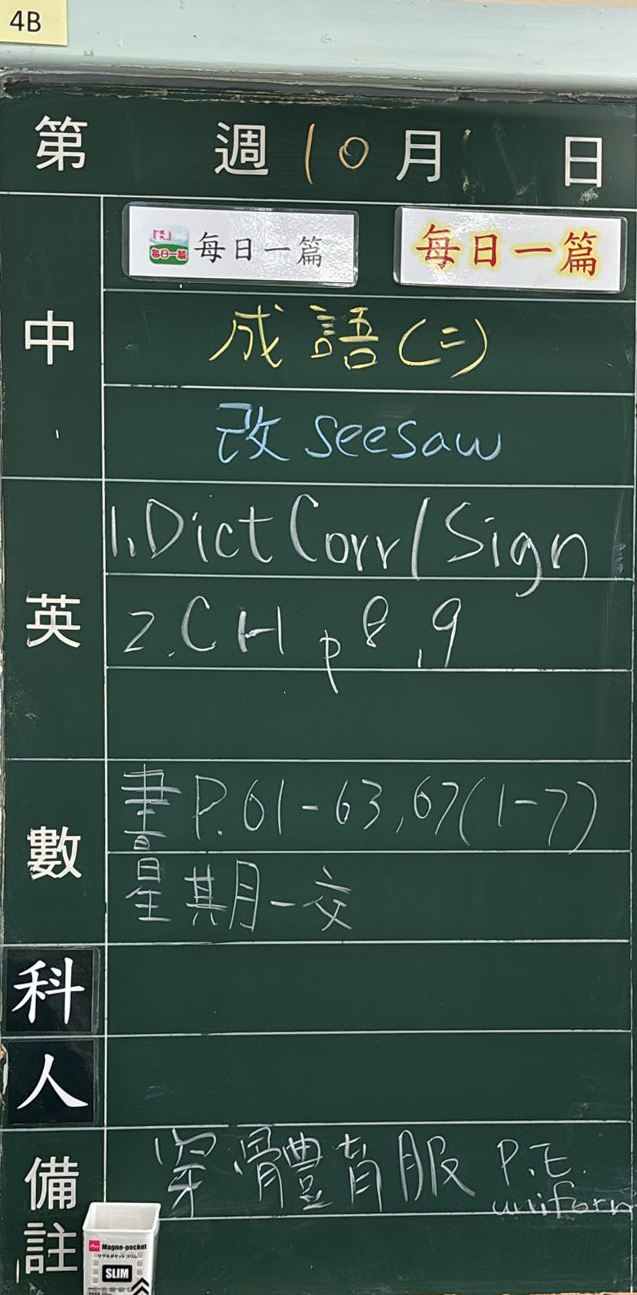 4B
第 週 10 月 日
中
每日一篇 每日一篇 每日一篇
成語(二)
改 seesaw
英
1. Dict Corr/Sign
2. CH p 8, 9
數
書 P. 61-63, 67(1-7)
星期一交
科
人
備註
穿體育服 P.E. uniform
Magne-pocket
SLIM